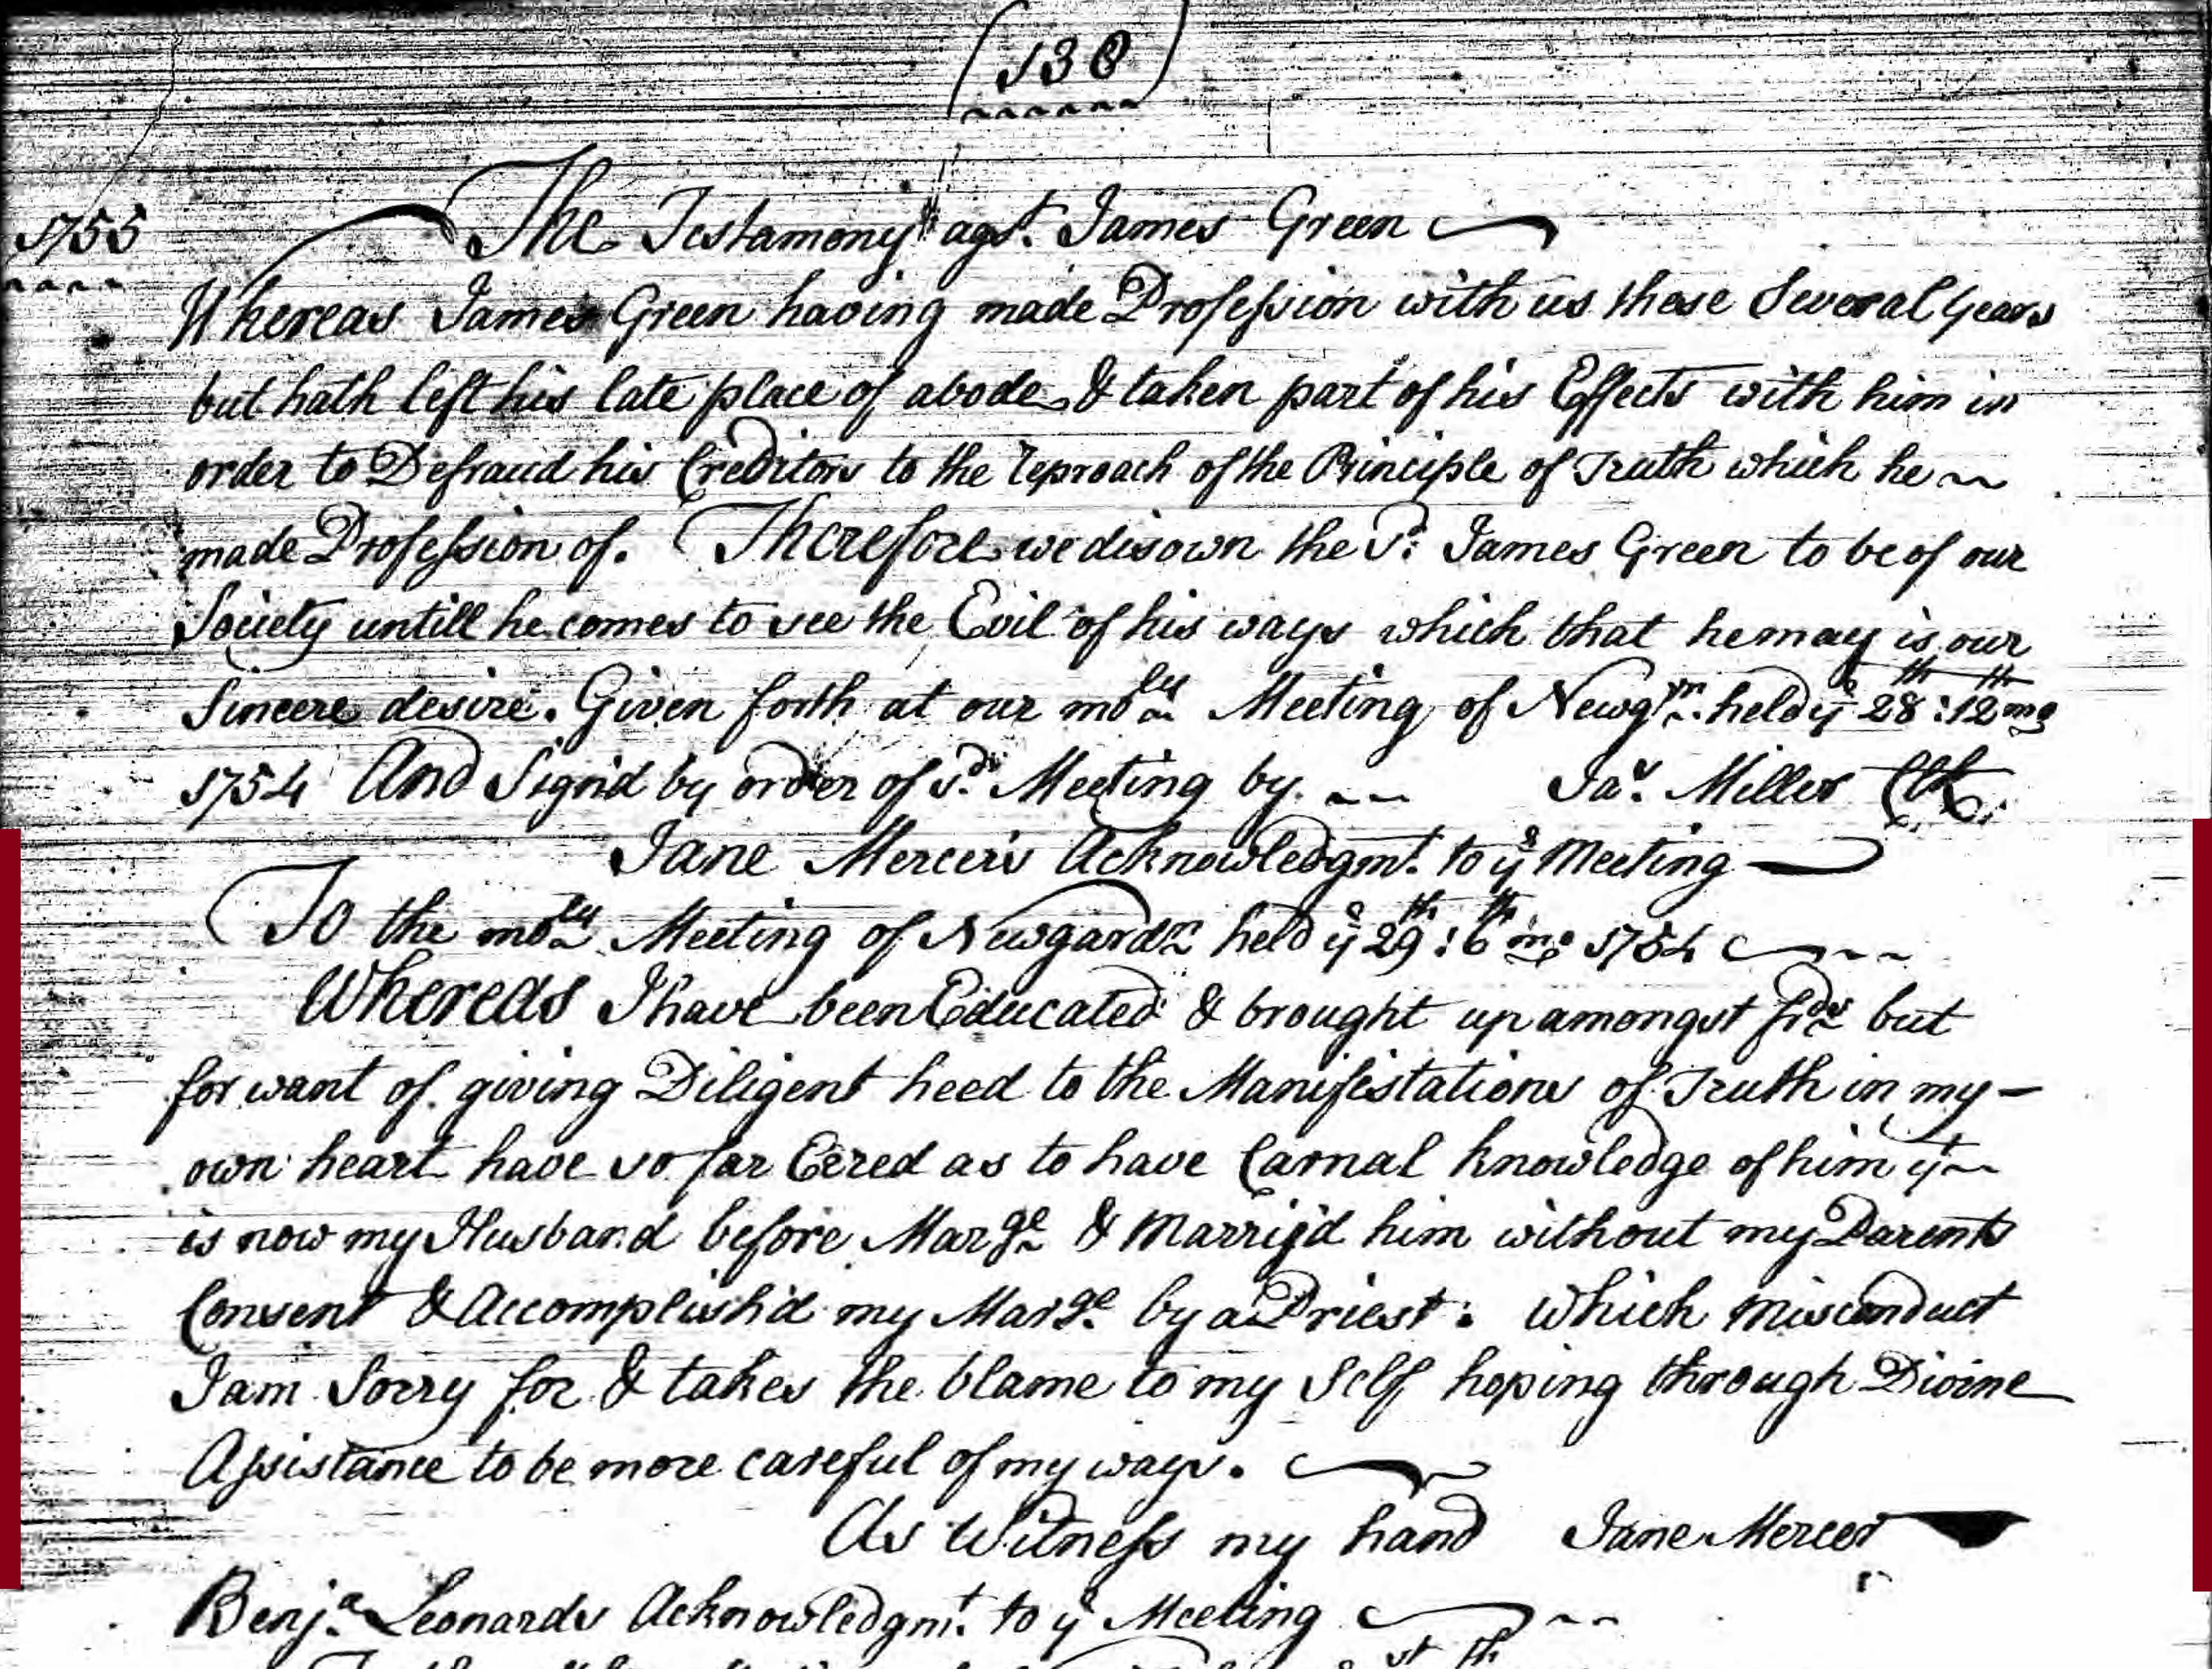 (130)
1755
The Testamony agst. James Green
Whereas James Green having made Profession with us these Several years
but hath left his late place of abode & taken part of his Effects with him in
order to Defraud his Creditors to the reproach of the Principle of Truth which he
made Profession of. Therefore we disown the sd. James Green to be of our
Society untill he comes to see the Evil of his ways which that he may is our
Sincere desire. Given forth at our moly Meeting of Newgrn. held ye 28th: 12th mo
1754 And Signd by order of sd. Meeting by. Jas. Miller Clk
Jane Mercer's Acknowledgmt. to ye Meeting
To the moly Meeting of Newgardn held ye 29th: 6th mo 1754
Whereas I have been Educated & brought up amongst frds but
for want of giving Diligent heed to the Manifestations of Truth in my
own heart have so far Eered as to have Carnal knowledge of him yt
is now my Husband before Marge & Marry'd him without my Parents
Consent & Accomplish'd my Marge. by a Priest: which misconduct
I am Sorry for & takes the blame to my Self hoping through Divine
Assistance to be more careful of my ways.
As Witness my hand Jane Mercer
Benja. Leonards Acknowledgmt. to ye Meeting